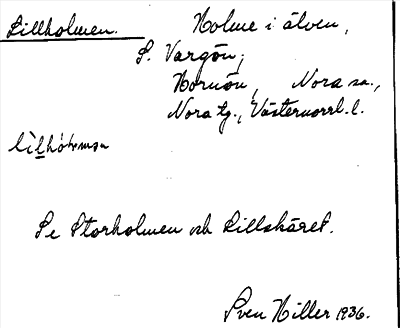 Lillholmen. Holme i älven,
S. Vargön;
Hornön, Nora sn.,
Nora tg., Västernorrl. l.
Se Storholmen och Lillskäret.
Sven Hiller 1936.